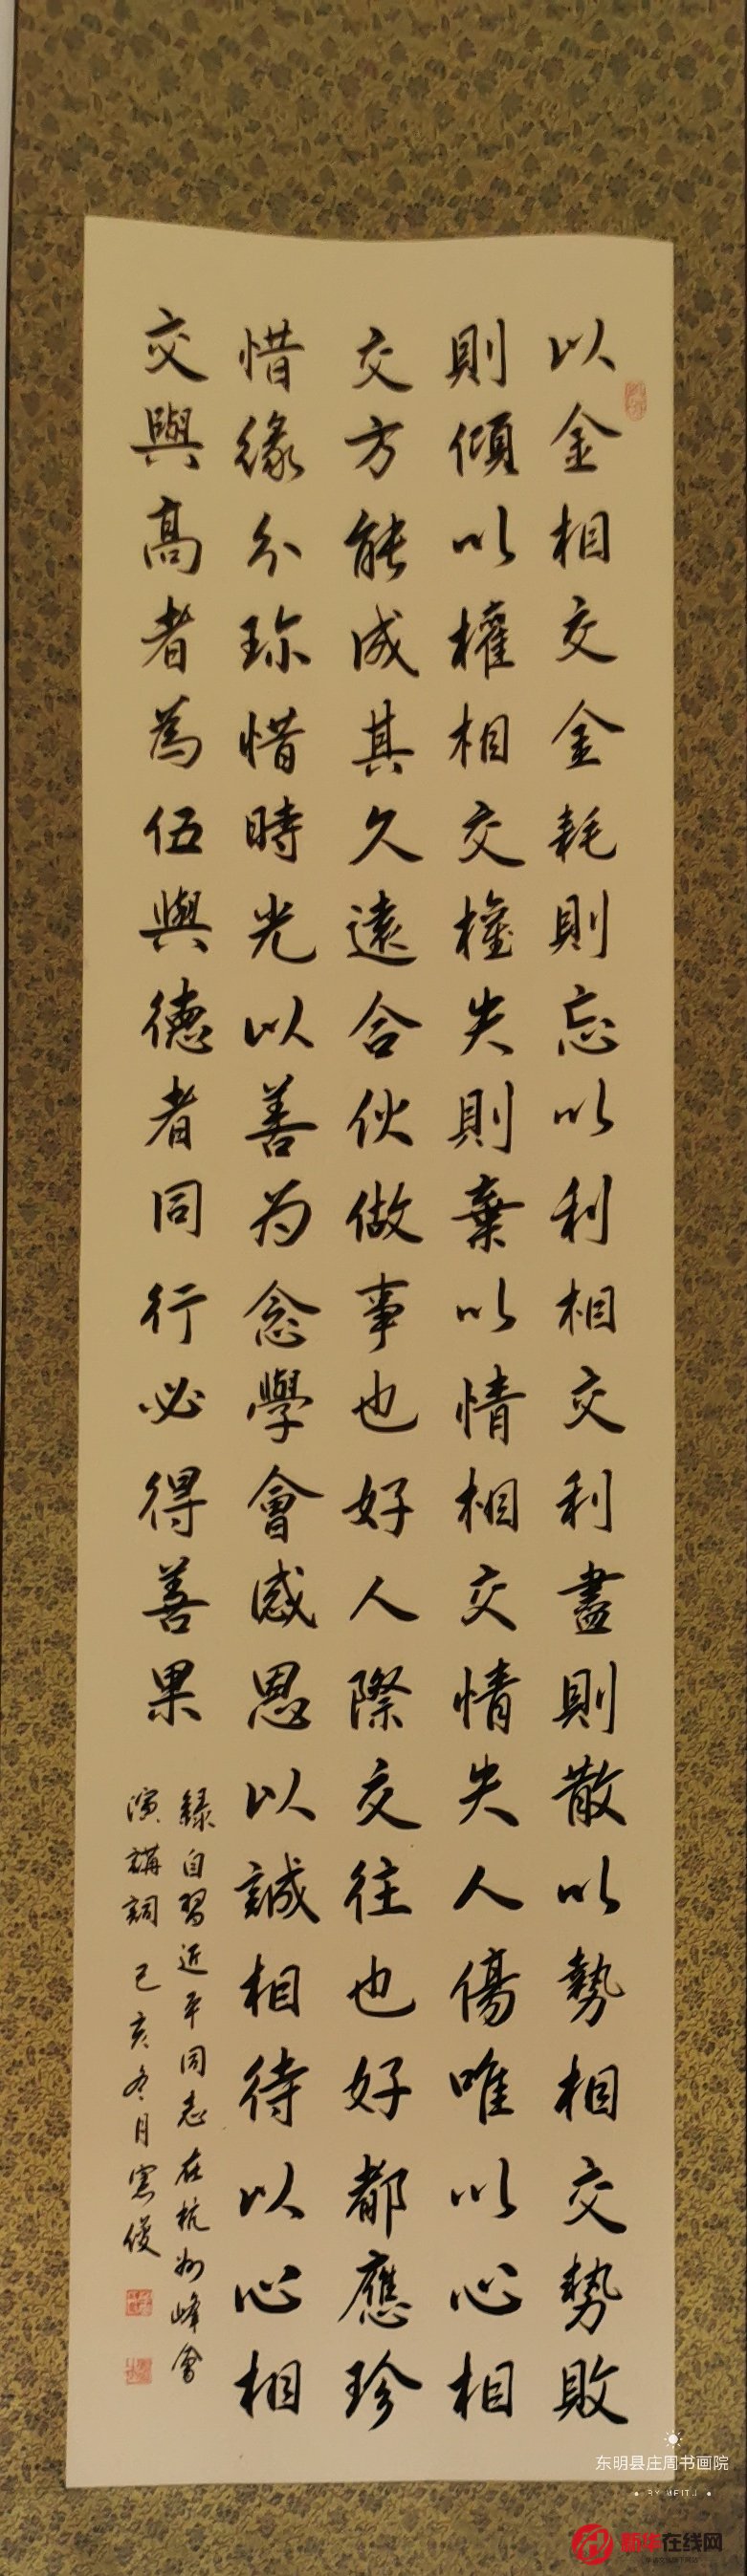 以金相交金耗則忘以利相交利盡則散以勢相交勢敗
則傾以權相交權失則棄以情相交情失人傷唯以心相
交方能成其久遠合伙做事也好人際交往也好都應珍
惜緣分珎惜時光以善为念學會感恩以誠相待以心相
交與高者為伍與德者同行必得善果
録自習近平同志在杭州峰會
演講詞己亥冬月憲俊
东明县庄周书画院
BY MEITU
新华在线网